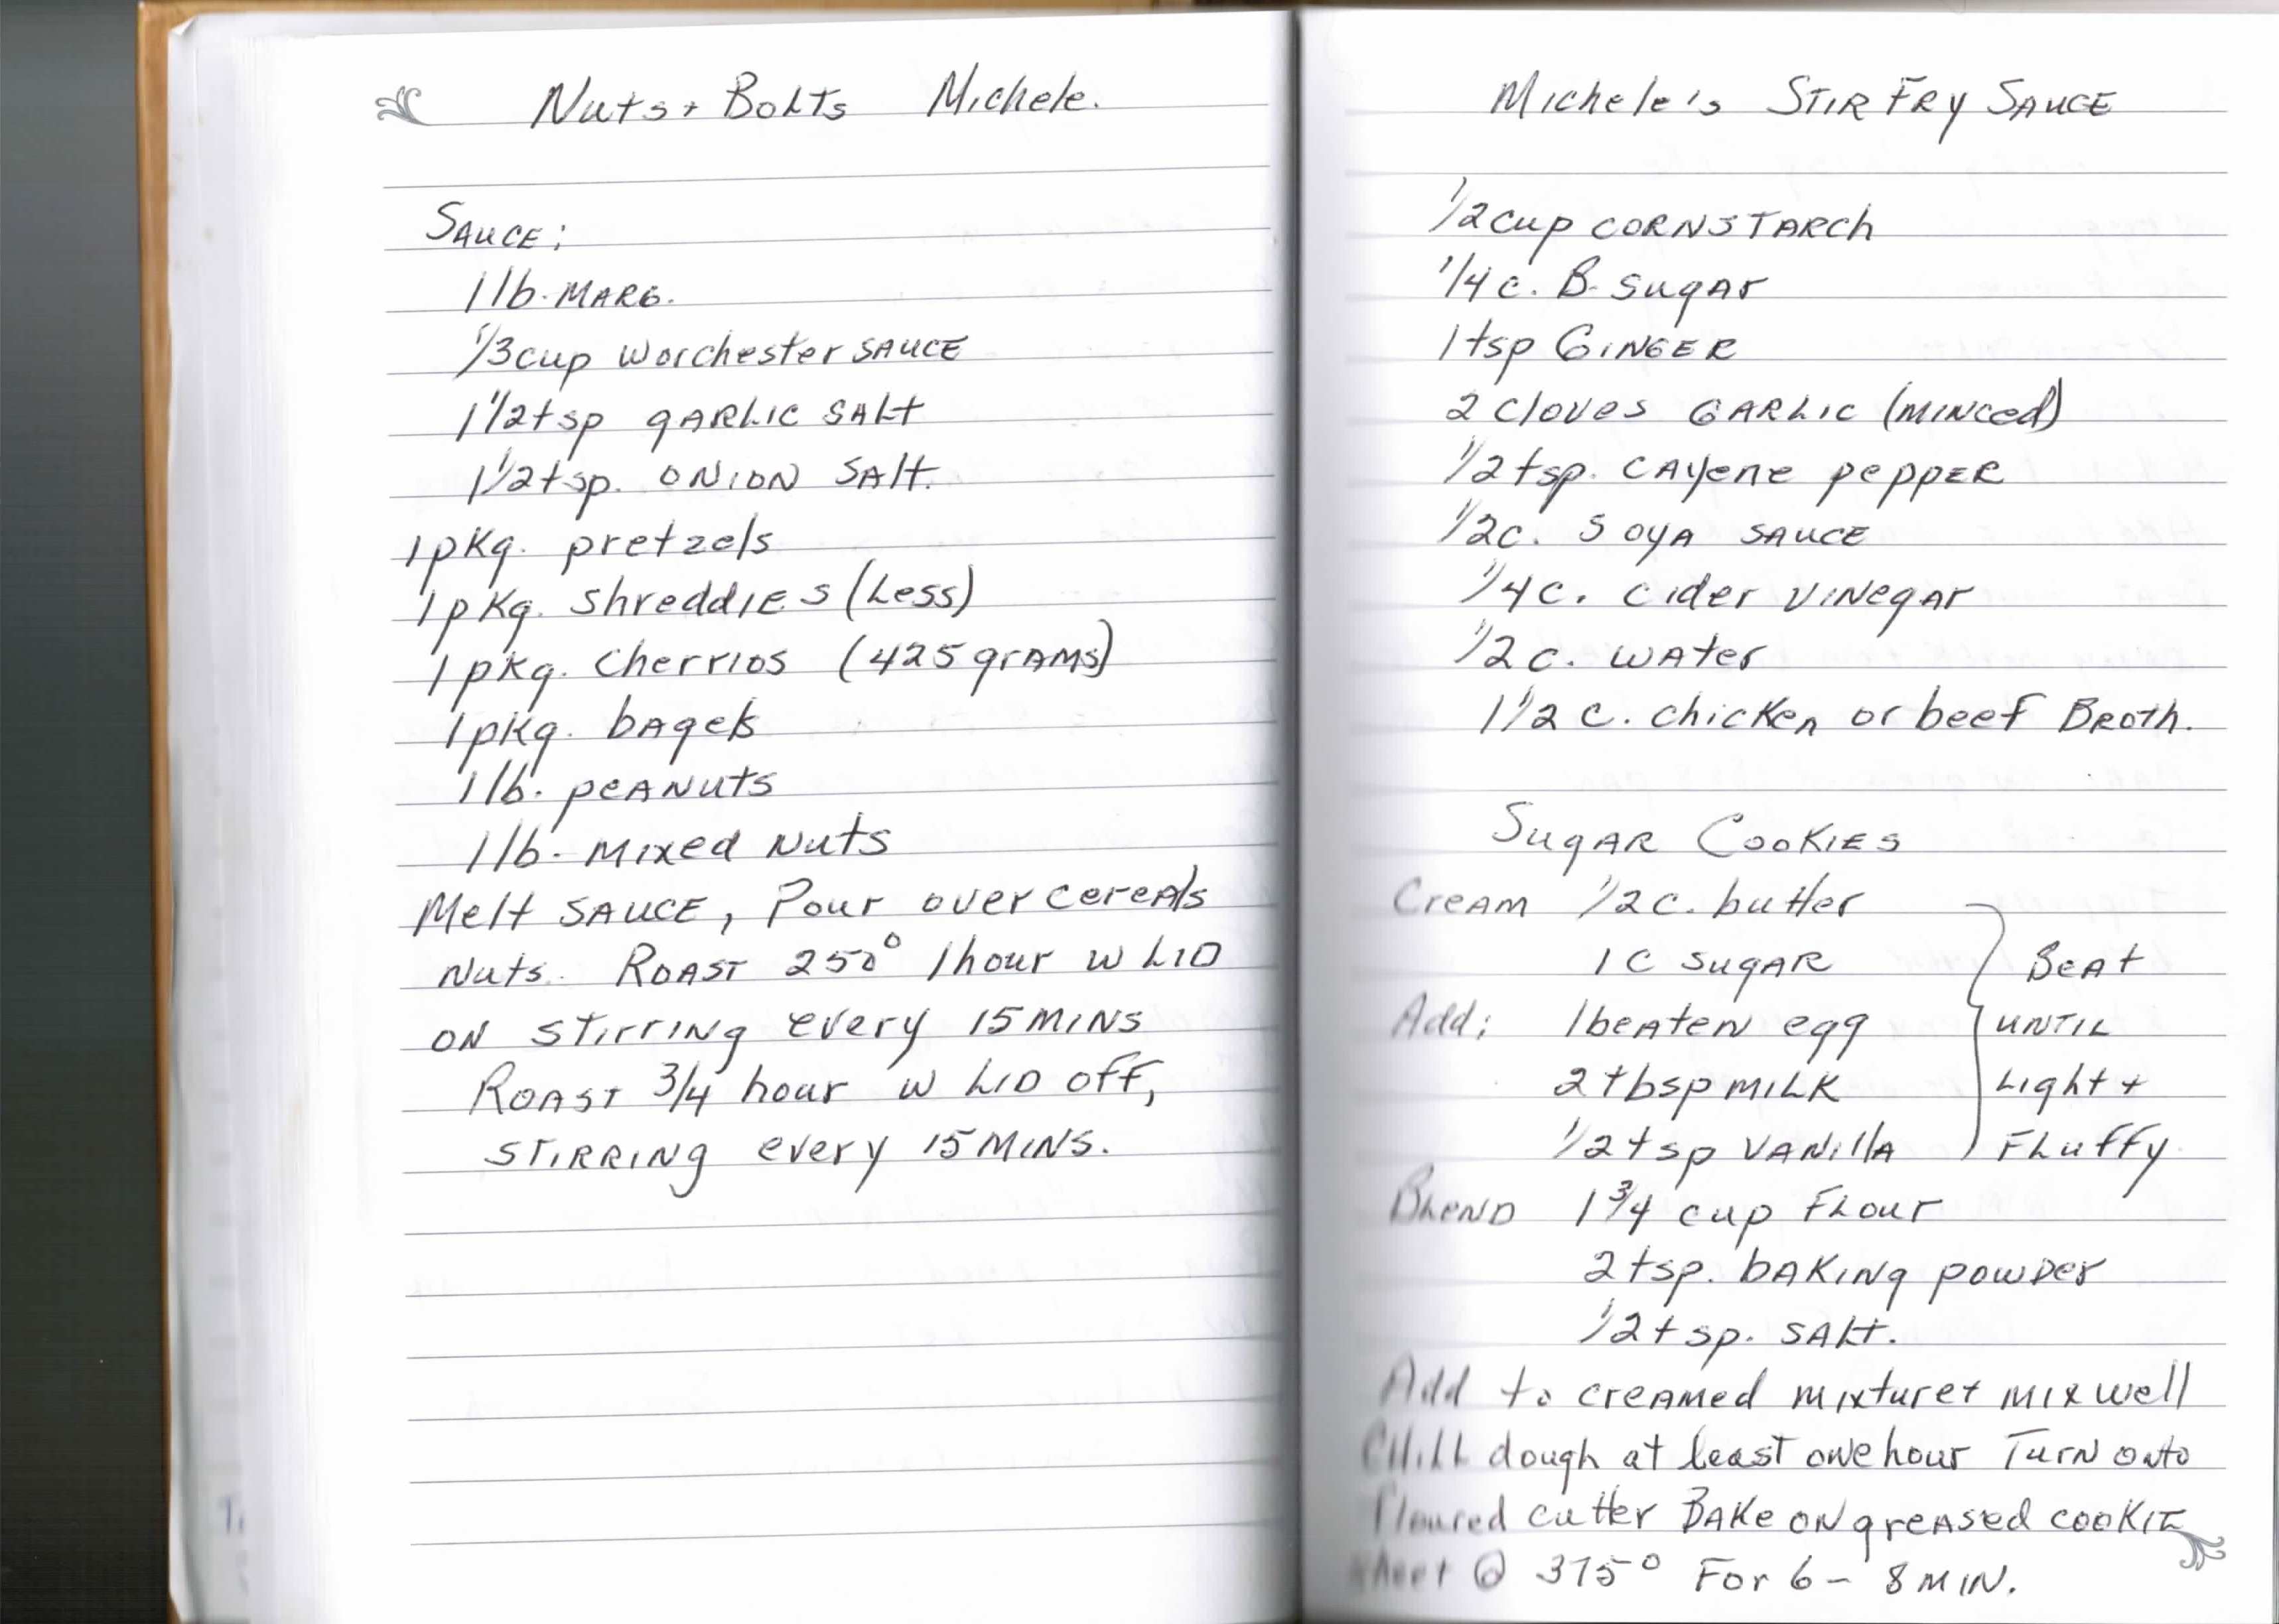 Nuts + Bolts Michele.
Sauce:
1 lb. Marg.
1/3 cup Worchester Sauce
1 1/2 tsp garlic salt
1 1/2 tsp. onion salt.
1 pkg. pretzels
1 pkg. Shreddies (Less)
1 pkg. Cherrios (425 grams)
1 pkg. bagels
1 lb. peanuts
1 lb. mixed nuts
Melt sauce, Pour over cereals
Nuts. Roast 250° 1 hour w Lid
on stirring every 15 mins
Roast 3/4 hour w Lid off,
stirring every 15 mins.
Michele's Stir Fry Sauce
1/2 cup cornstarch
1/4 c. B. Sugar
1 tsp Ginger
2 cloves Garlic (minced)
1/2 tsp. cayene pepper
1/2 c. Soya sauce
1/4 c. cider vinegar
1/2 c. water
1 1/2 c. chicken or beef Broth.
Sugar Cookies
Cream 1/2 c. butter
1 c sugar Beat
Add: 1 beaten egg until
2 tbsp milk Light +
1/2 tsp vanilla Fluffy
Blend 1 3/4 cup Flour
2 tsp. baking powder
1/2 tsp. salt.
Add to creamed mixture + mix well
Chill dough at least one hour Turn onto
Floured cutter Bake on greased cookie
sheet @ 375° For 6 - 8 min.